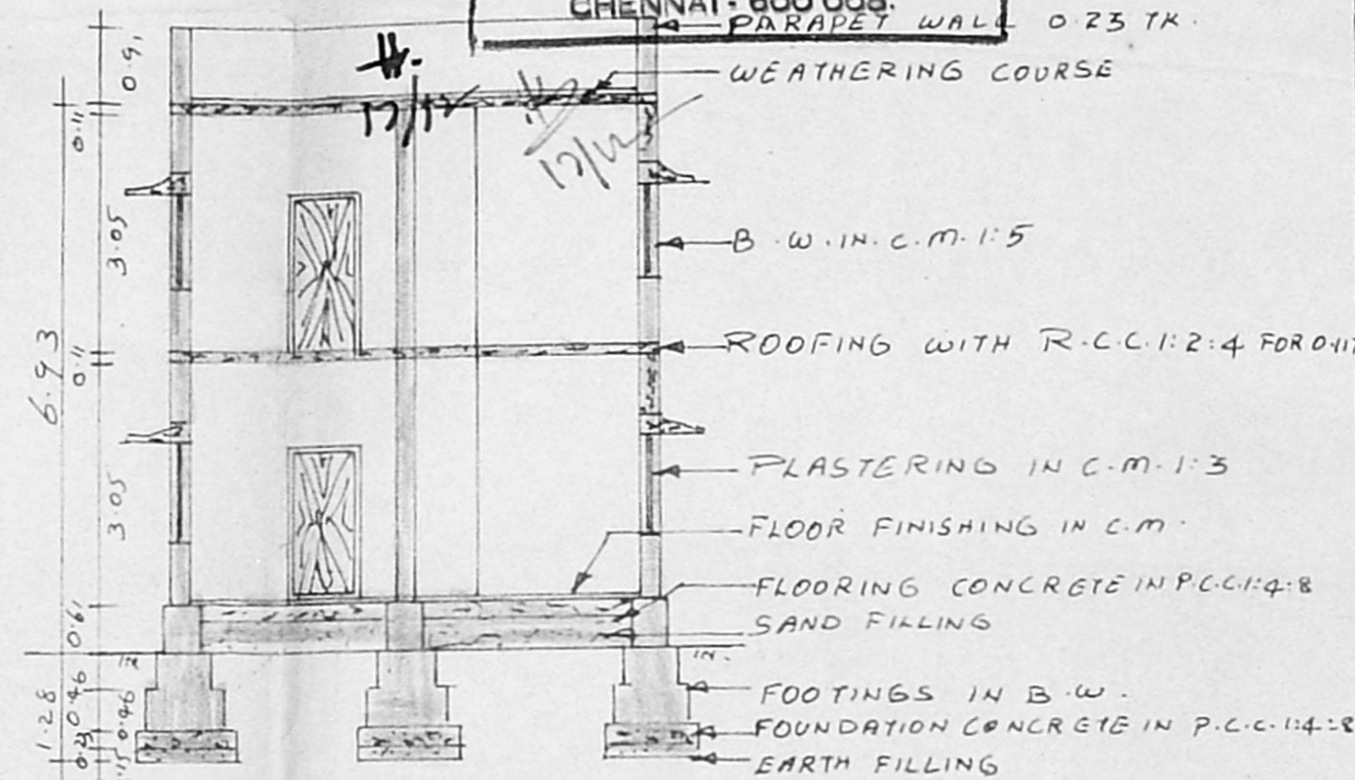 CHENNAI - 600 008.
PARAPET WALL 0.23 TK.
WEATHERING COURSE
17/12
17/12
B.W.IN.C.M.1:5
ROOFING WITH R.C.C.1:2:4 FOR 0.11
PLASTERING IN C.M.1:3
FLOOR FINISHING IN C.M.
FLOORING CONCRETE IN P.C.C.1:4:8
SAND FILLING
FOOTINGS IN B.W.
FOUNDATION CONCRETE IN P.C.C.1:4:8
EARTH FILLING
0.91
0.11
3.05
6.93
0.11
3.05
0.61
1.28
0.46
0.46
0.23
.15